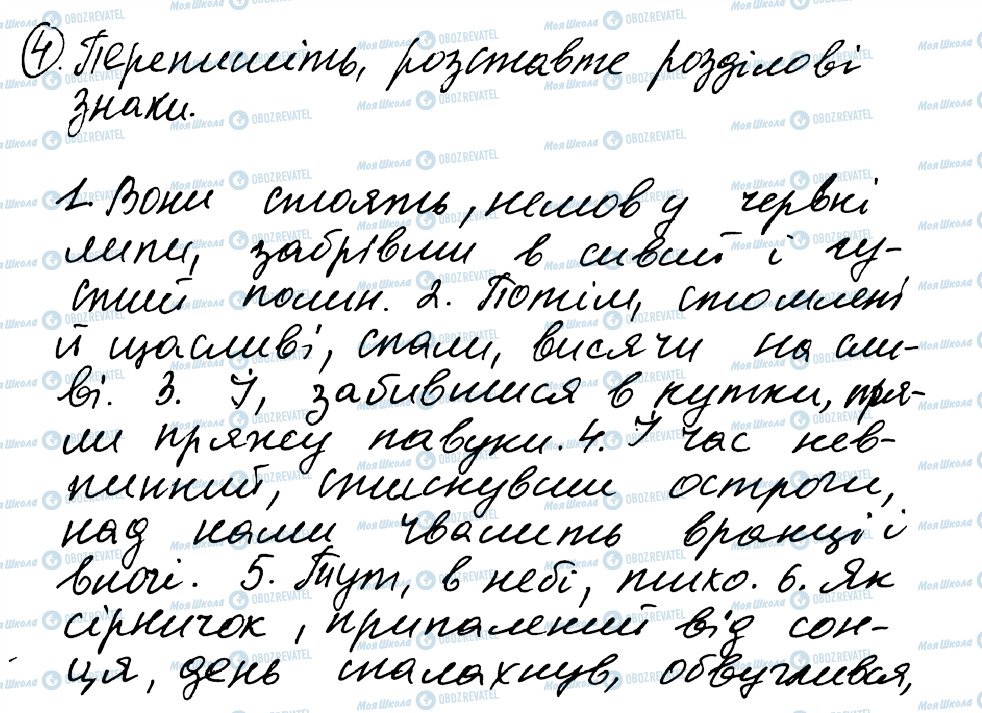 4. Перепишіть, розставте розділові
знаки.
1. Вони стоять, немов у червні
липи, забрівши в сивий і гу-
стий полин. 2. Потім, стомлені
й щасливі, спали, висячи на сли-
ві. 3. І, забившися в кутки, пря-
ли пряжу павуки. 4. І час нев-
пинний, стиснувши остроги,
над нами чвалить вранці і
вночі. 5. Тут, в небі, тихо. 6. Як
сірничок, припалений від сон-
ця, день спалахнув, обвуглився,